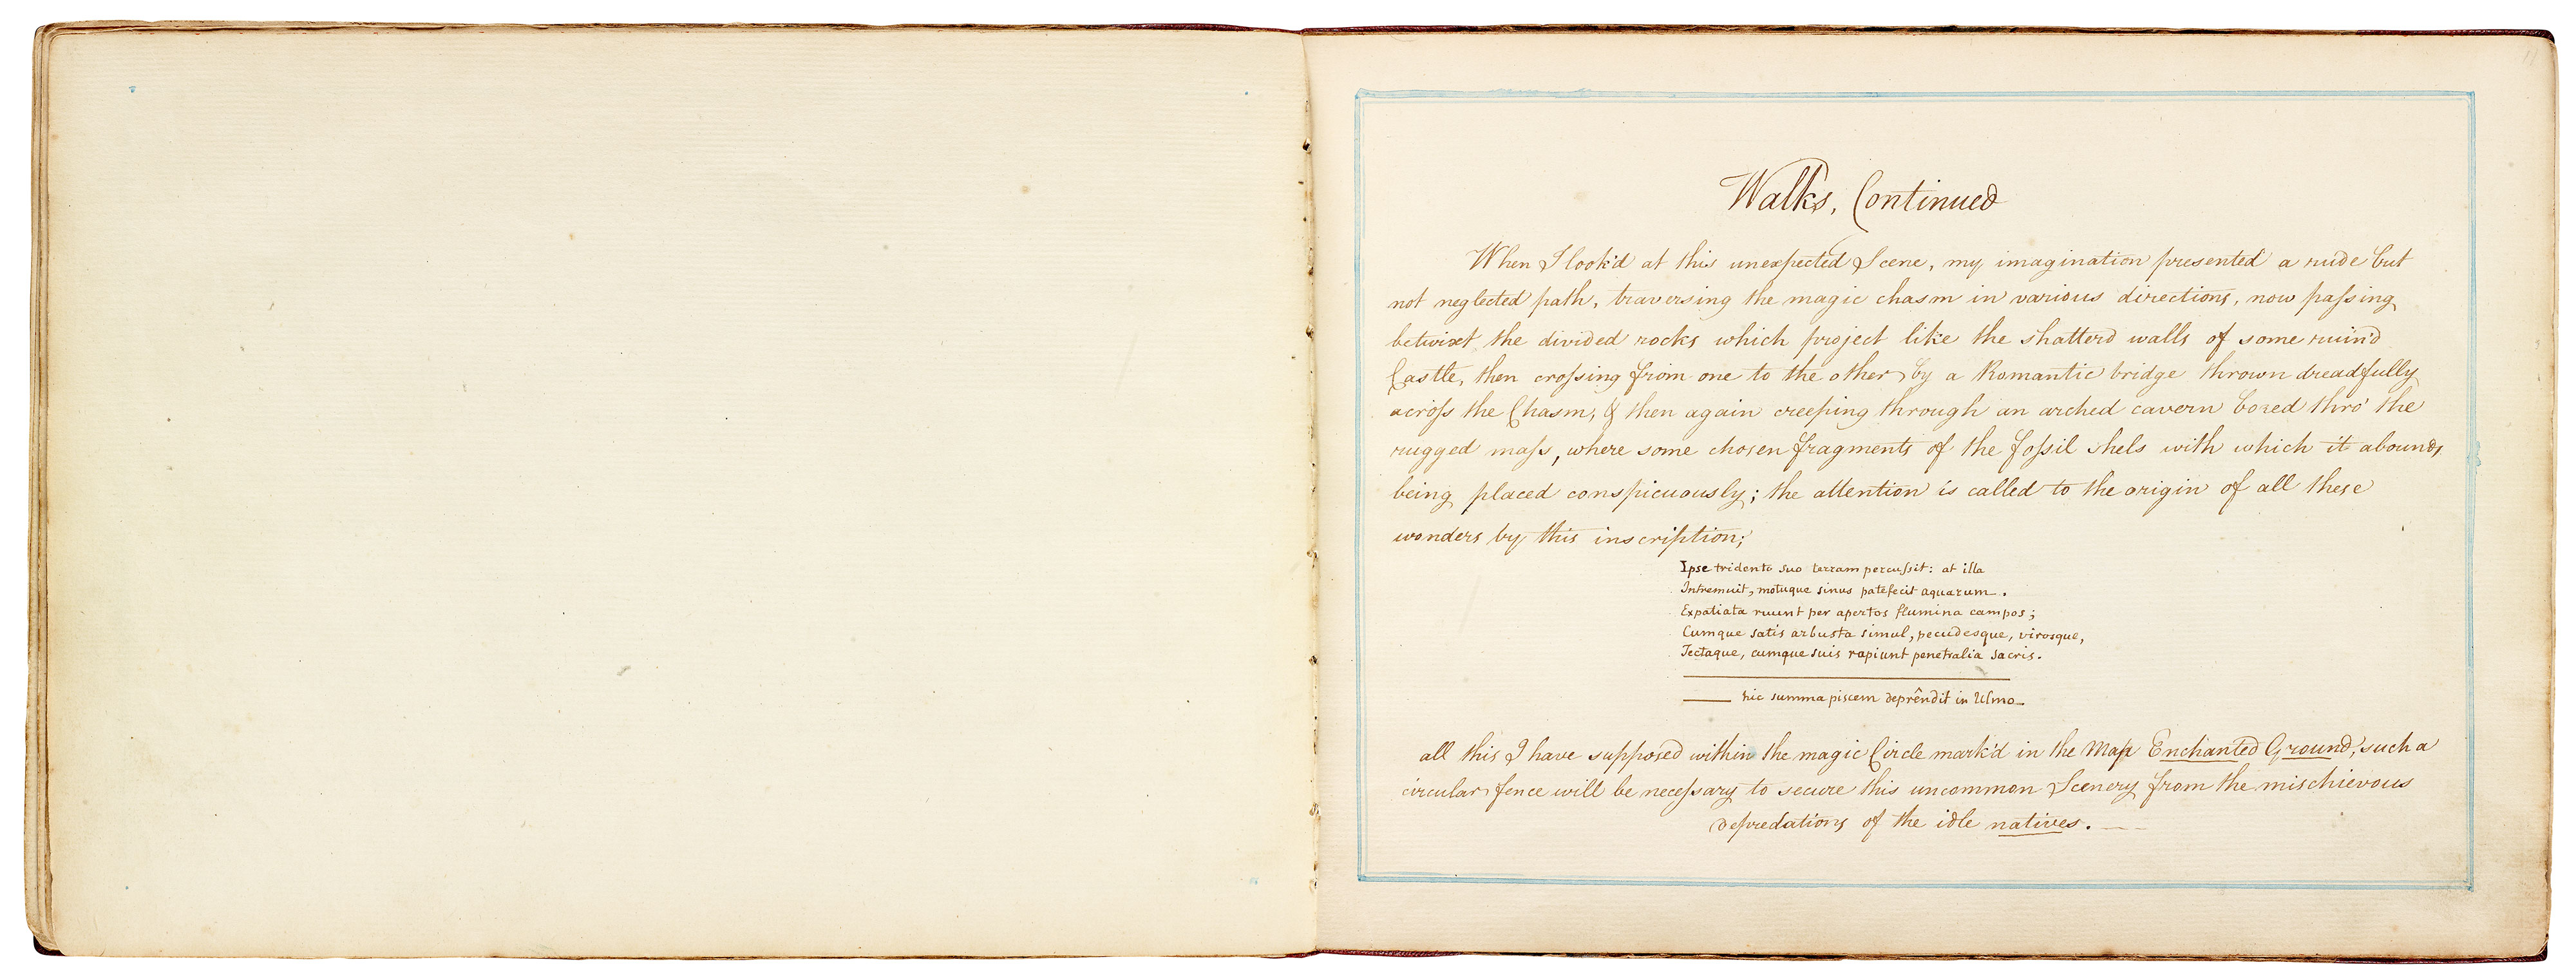 Walks, Continued
When I look'd at this unexpected Scene, my imagination presented a rude but
not neglected path, traversing the magic chasm in various directions, now paſsing
betwixt the divided rocks which project like the shatterd walls of some ruin'd
Castle, then croſsing from one to the other by a Romantic bridge thrown dreadfully
acroſs the Chasm, & then again creeping through an arched cavern bored thro' the
rugged maſs, where some chosen fragments of the foſsil shels with which it abounds
being placed conspicuously; the attention is called to the origin of all these
wonders by this inscription;
Ipse tridente suo terram percuſsit: at illa
Intremuit, motuque sinus patefecit aquarum.
Expatiata ruunt per apertos flumina campos;
Cumque satis arbusta simul, pecudesque, virosque,
Tectaque, cumque suis rapiunt penetralia sacris.
hic summa piscem deprêndit in Ulmo
all this I have supposed within the magic Circle mark'd in the Map Enchanted Ground, such a
circular fence will be neceſsary to secure this uncommon Scenery from the mischievous
depredations of the idle natives.